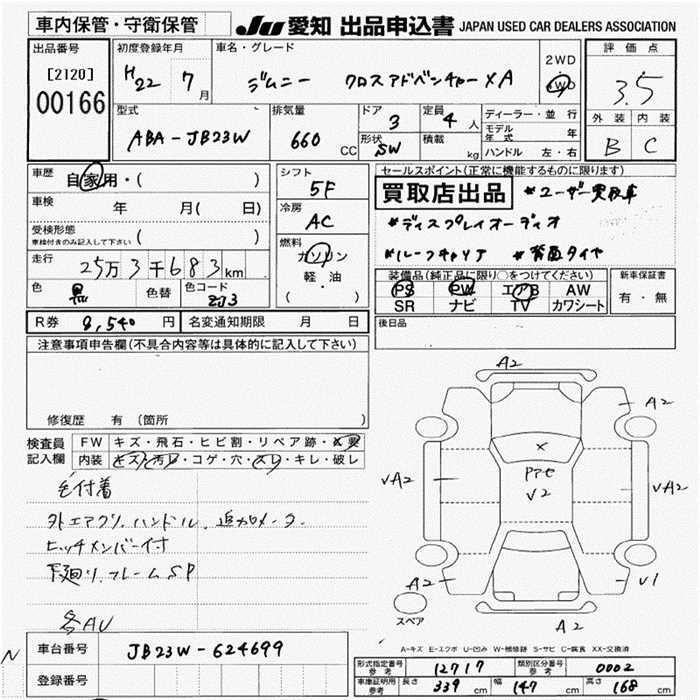 車内保管・守衛保管
JU 愛知 出品申込書 JAPAN USED CAR DEALERS ASSOCIATION
出品番号
[2120]
00166
初度登録年月
H22 7月
車名・グレード
ジムニー クロスアドベンチャーXA
2WD
4WD
評価点
3.5
外装 内装
B C
型式
ABA-JB23W
排気量
660 CC
ドア
3
形状
SW
定員
4人
積載 kg
ディーラー・並行
モデル年式 年
ハンドル 左・右
車歴
自家用・( )
車検 年 月( 日)
受検形態
車検付きのみ記入して下さい ( )
走行
25万3千683km
色 黒 色替 色コード ZJ3
R券 8,540円 名変通知期限 月 日
シフト
5F
冷房
AC
燃料
ガソリン
・
軽・油
( ・ )
セールスポイント(正常に機能するものに限ります)
買取店出品 *ユーザー買取車
*ディスプレイオーディオ
*ルーフキャリア *背面タイヤ
装備品(純正品に限り○をつけてください)
PS PW エアB AW
SR ナビ TV カワシート
新車保証書
有・無
後日品
注意事項申告欄(不具合内容等は具体的に記入して下さい)
修復歴 有(箇所 )
検査員記入欄
FW キズ・飛石・ヒビ割・リペア跡・×要
内装 キズ・汚レ・コゲ・穴・スレ・キレ・破レ
毛付着
外エアクリ、ハンドル、追加メーター
ヒッチメンバー付
下廻り、フレームSP
各AU
N
車台番号 JB23W-624699
登録番号
A2
A2
X
アセ
V2
VA2
VA2
A2
V1
スペア
A2
A-キズ E-エクボ U-凹み W-補修跡 S-サビ C-腐食 XX-交換済
形式指定番号参考 12717 類別区分番号参考 0002
車庫証明用参考 長さ 339cm 幅 147cm 高さ 168cm